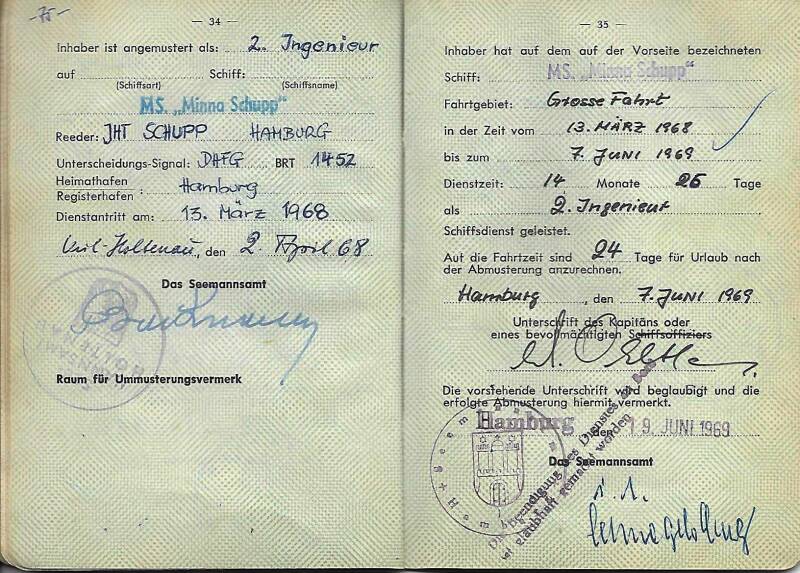 -75-
— 34 —
Inhaber ist angemustert als: 2. Ingenieur
auf Schiff:
(Schiffsart) (Schiffsname)
MS. „Minna Schupp"
Reeder: JHT SCHUPP HAMBURG
Unterscheidungs-Signal: DHFG BRT 1452
Heimathafen
Registerhafen : Hamburg
Dienstantritt am: 13. März 1968
Kiel-Holtenau, den 2. April 68
Das Seemannsamt
HOLTENAU
Raum für Ummusterungsvermerk
— 35 —
Inhaber hat auf dem auf der Vorseite bezeichneten
Schiff: MS. „Minna Schupp"
Fahrtgebiet: Grosse Fahrt
in der Zeit vom 13. MÄRZ 1968
bis zum 7. JUNI 1969
Dienstzeit: 14 Monate 26 Tage
als 2. Ingenieur
Schiffsdienst geleistet.
Auf die Fahrtzeit sind 24 Tage für Urlaub nach
der Abmusterung anzurechnen.
Hamburg, den 7. JUNI 1969
Unterschrift des Kapitäns oder
eines bevollmächtigten Schiffsoffiziers
Die vorstehende Unterschrift wird beglaubigt und die
erfolgte Abmusterung hiermit vermerkt.
Hamburg, den 19. JUNI 1969
Die Beendigung des Dienstes an Bord
ist glaubhaft gemacht worden
Das Seemannsamt
i. A.